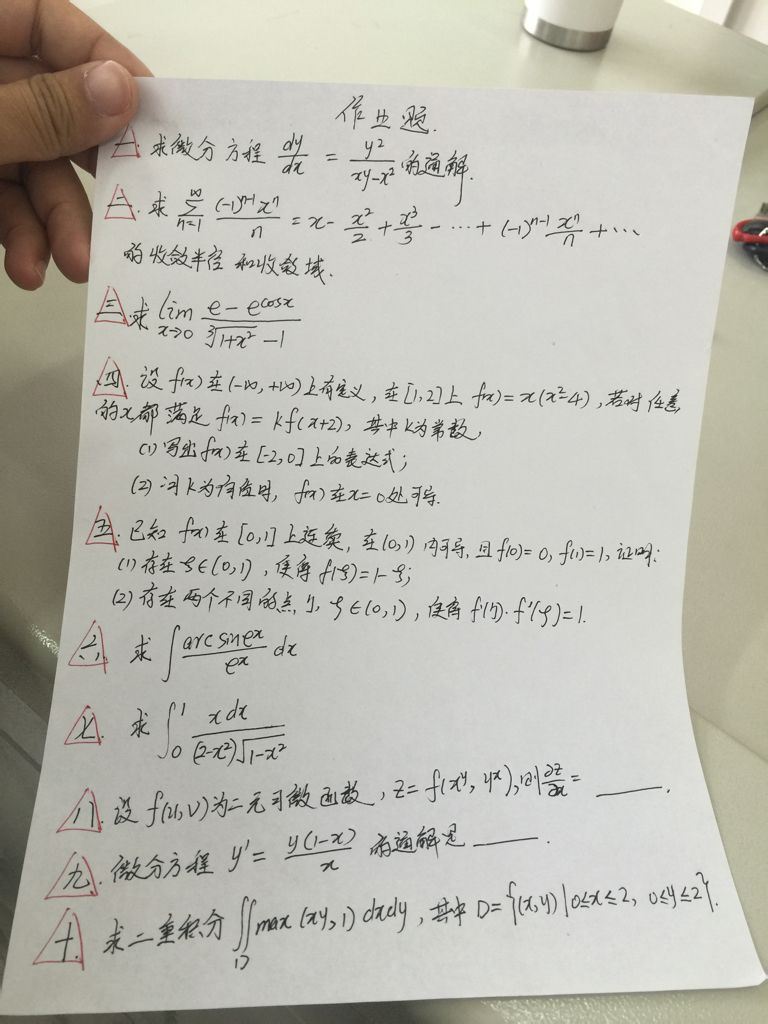 作业题.
一. 求微分方程 dy/dx = y²/(xy-x²) 的通解.
二. 求 ∑_{n=1}^{∞} (-1)^{n-1}x^n/n = x - x²/2 + x³/3 - ⋯ + (-1)^{n-1} x^n/n + ⋯
的收敛半径和收敛域.
三. 求 lim_{x→0} (e - e^{cosx})/(∛(1+x²) - 1)
四. 设 f(x) 在 (-∞, +∞) 上有定义, 在 [1,2] 上 f(x) = x(x²-4), 若对任意
的x都满足 f(x) = k f(x+2), 其中k为常数,
(1) 写出 f(x) 在 [-2,0] 上的表达式;
(2) 问 k 为何值时, f(x) 在 x=0 处可导.
五. 已知 f(x) 在 [0,1] 上连续, 在 (0,1) 内可导, 且 f(0)=0, f(1)=1, 证明:
(1) 存在 ξ∈(0,1), 使得 f(ξ)=1-ξ;
(2) 存在两个不同的点 η, ξ∈(0,1), 使得 f'(η)·f'(ξ)=1.
六. 求 ∫ (arc sin e^x)/e^x dx
七. 求 ∫_0^1 x dx/((2-x²)√(1-x²))
八. 设 f(u,v) 为二元可微函数, z = f(x^y, y^x), 则 ∂z/∂x = ____.
九. 微分方程 y' = y(1-x)/x 的通解是 ____.
十. 求二重积分 ∬_D max(xy, 1) dxdy, 其中 D={(x,y)|0≤x≤2, 0≤y≤2}.